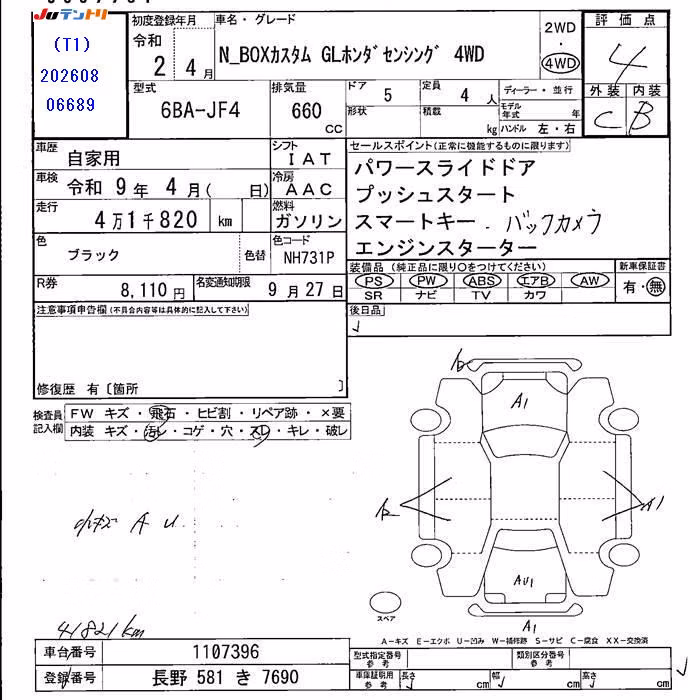 Juテントリ
(T1)
202608
06689
初度登録年月
令和
2 4 月
車名・グレード
N_BOXカスタム GLホンダセンシング 4WD
2WD
・
4WD
評価点
4
外装 内装
C B
型式
6BA-JF4
排気量
660
CC
ドア 5
定員 4 人
形状
積載 kg
ディーラー・並行
モデル年式 年
ハンドル 左・右
車歴 自家用
シフト IAT
車検 令和 9 年 4 月( 日)
冷房 AAC
走行 4万1千820 km
燃料 ガソリン
色 ブラック 色替
色コード NH731P
R券 8,110 円
名変通知期限 9 月 27 日
セールスポイント(正常に機能するものに限ります)
パワースライドドア
プッシュスタート
スマートキー . バックカメラ
エンジンスターター
装備品 (純正品に限り○をつけてください)
新車保証書
PS PW ABS エアB AW
SR ナビ TV カワ
有・無
後日品
注意事項申告欄(不具合内容等は具体的に記入して下さい)
修復歴 有〔箇所 〕
検査員記入欄
FW キズ・飛石・ヒビ割・リペア跡・×要
内装 キズ・汚レ・コゲ・穴・スレ・キレ・破レ
小キズ A U
A1
A1
AU1
A1
スペア
A-キズ E-エクボ U-凹み W-補修跡 S-サビ C-腐食 XX-交換済
41821km
車台番号 1107396
登録番号 長野 581 き 7690
型式指定番号 参考
類別区分番号 参考
車庫証明用 参考
長さ cm 幅 cm 高さ cm